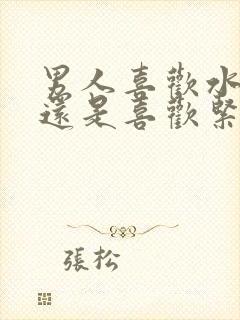 男人喜歡水
還是喜歡緊
張松